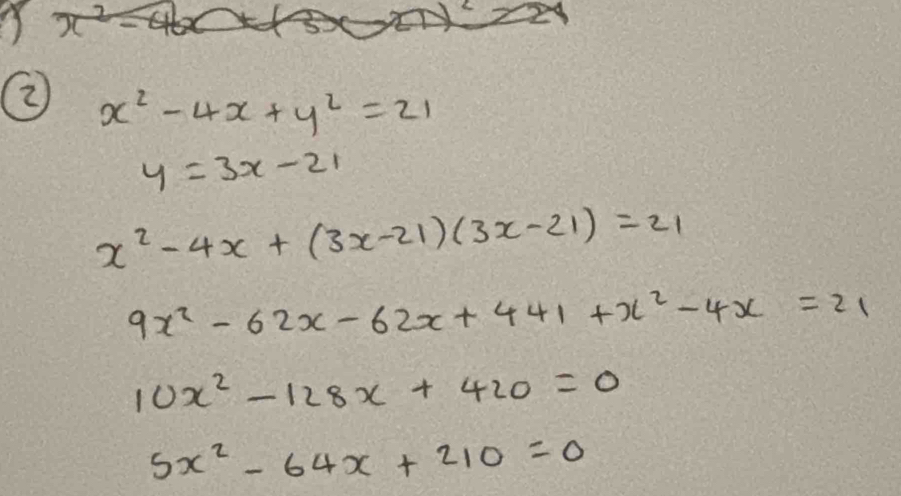 ② x² - 4x + y² = 21
y = 3x - 21
x² - 4x + (3x-21)(3x-21) = 21
9x² - 62x - 62x + 441 + x² - 4x = 21
10x² - 128x + 420 = 0
5x² - 64x + 210 = 0